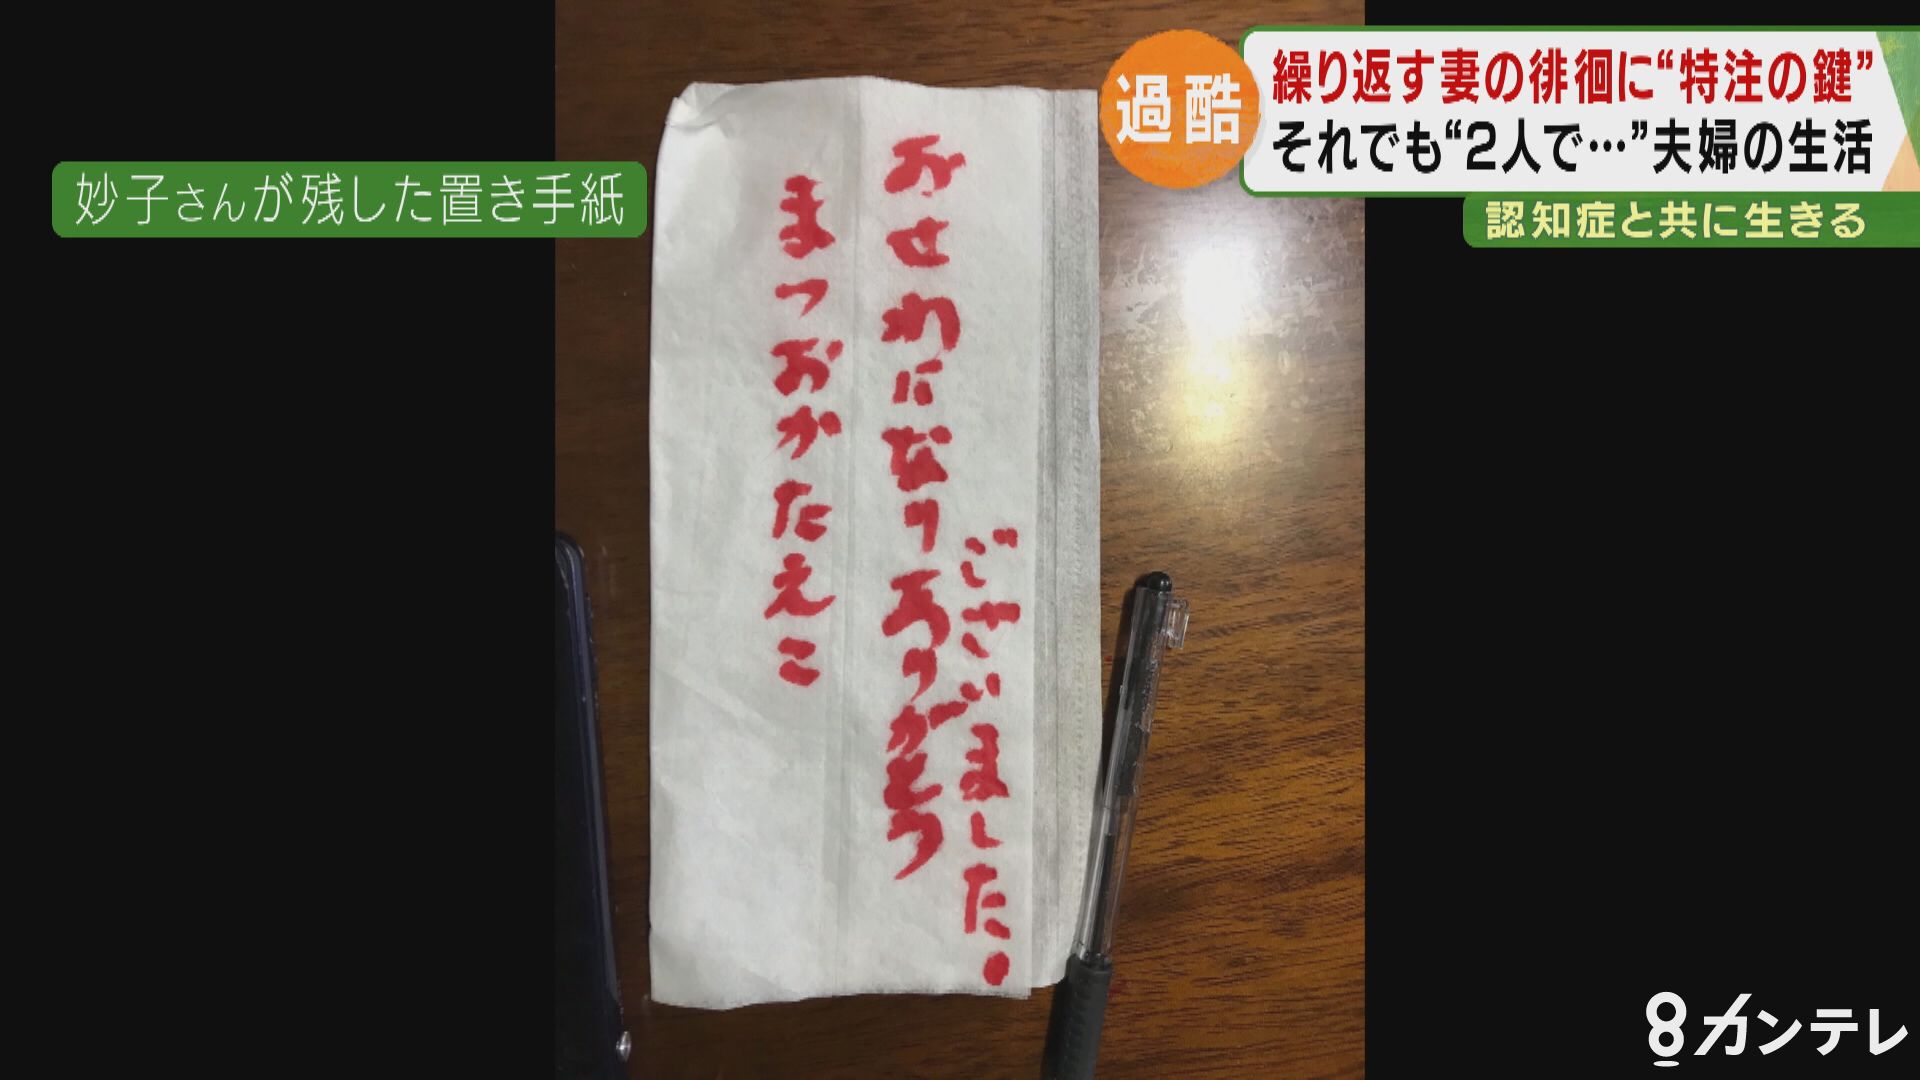 過酷
繰り返す妻の徘徊に“特注の鍵”
それでも“2人で…”夫婦の生活
認知症と共に生きる
妙子さんが残した置き手紙
おせわになりありがとう
ございました。
まつおかたえこ
8カンテレ